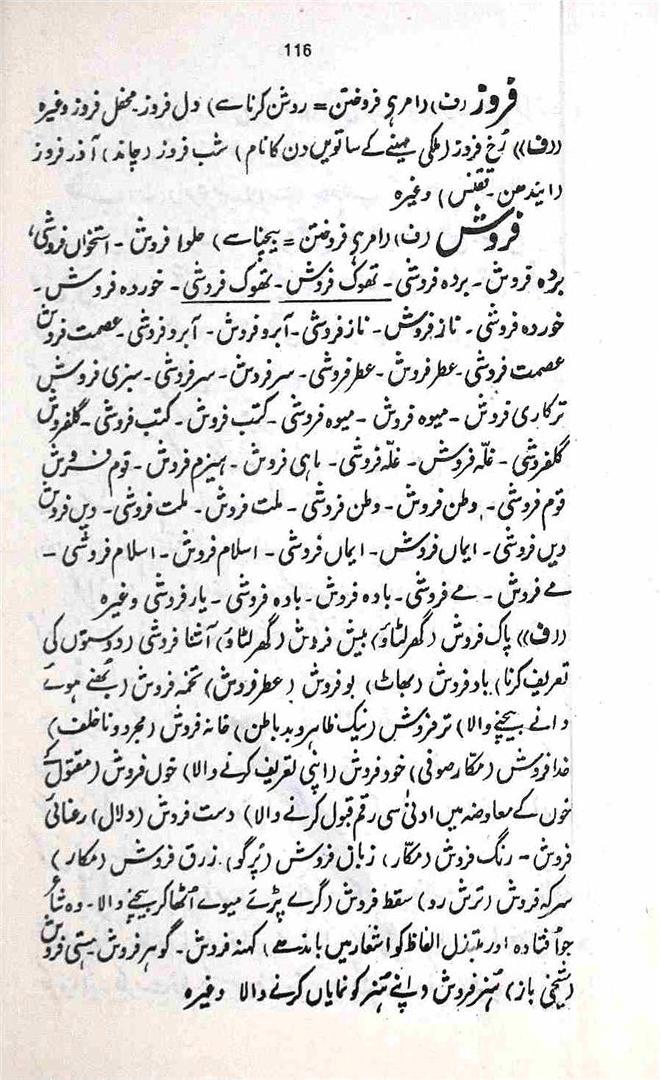 116
فروز (ف) (امر ہے فروختن = روشن کرنا سے) دل فروز۔ محفل فروز وغیرہ
((ف)) رُخ فروز (ملکی مہینے کے ساتویں دن کا نام) شب فروز (چاند) آذر فروز
(ایندھن۔ ققنس) وغیرہ
فروش (ف) (امر ہے فروختن = بیچنا سے) حلوا فروش۔ استخواں فروشی،
بردہ فروش۔ بردہ فروشی۔ تھوک فروش۔ تھوک فروشی۔ خوردہ فروش۔
خوردہ فروشی۔ ناز فروش۔ ناز فروشی۔ آبرو فروش۔ آبرو فروشی۔ عصمت فروش
عصمت فروشی۔ عطر فروش۔ عطر فروشی۔ سر فروش۔ سر فروشی۔ سبزی فروش
ترکاری فروش۔ میوہ فروش۔ میوہ فروشی۔ کتب فروش۔ کتب فروشی۔ گلفروش
گلفروشی۔ غلّہ فروش۔ غلّہ فروشی۔ ماہی فروش۔ ہیزم فروش۔ قوم فروش
قوم فروشی۔ وطن فروش۔ وطن فروشی۔ ملت فروش۔ ملت فروشی۔ دیں فروش
دیں فروشی۔ ایماں فروش۔ ایماں فروشی۔ اسلام فروش۔ اسلام فروشی۔
مے فروش۔ مے فروشی۔ بادہ فروش۔ بادہ فروشی۔ یار فروشی وغیرہ
((ف)) پاک فروش (گھر لٹاؤ) بیش فروش (گھر لٹاؤ) آشنا فروشی (دوستوں کی
تعریف کرنا) باد فروش (بھاٹ) بو فروش (عطر فروش) تخمہ فروش (بھُنے ہوئے
دانے بیچنے والا) تر فروش (نیک ظاہر و بد باطن) خانہ فروش (مجرد و ناخلف)
خدا فروش (مکّار صوفی) خود فروش (اپنی تعریف کرنے والا) خوں فروش (مقتول کے
خون کے معاوضہ میں ادنیٰ سی رقم قبول کرنے والا) دست فروش (دلال) رعنائی
فروش۔ رنگ فروش (مکّار) زباں فروش (پُرگو) زرق فروش (مکار)
سرکہ فروش (ترش رو) سقط فروش (گرے پڑے میوے اُٹھا کر بیچنے والا۔ وہ شاعر
جو اُفتادہ اور مبتذل الفاظ کو اشعار میں باندھے) کہنہ فروش۔ گوہر فروش ہستی فروش
(شیخی باز) ہُنر فروش (اپنے ہُنر کو نمایاں کرنے والا وغیرہ